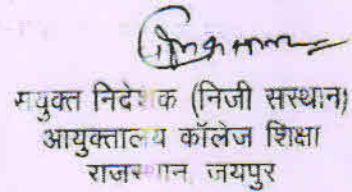 संयुक्त निदेशक (निजी संस्थान)
आयुक्तालय कॉलेज शिक्षा
राजस्थान, जयपुर